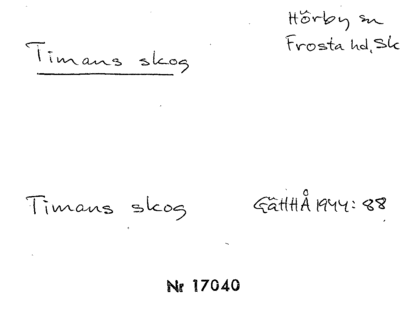 Hörby sn
Frosta hd, Sk
Timans skog
Timans skog GäHHÅ 1944: 88
Nr 17040